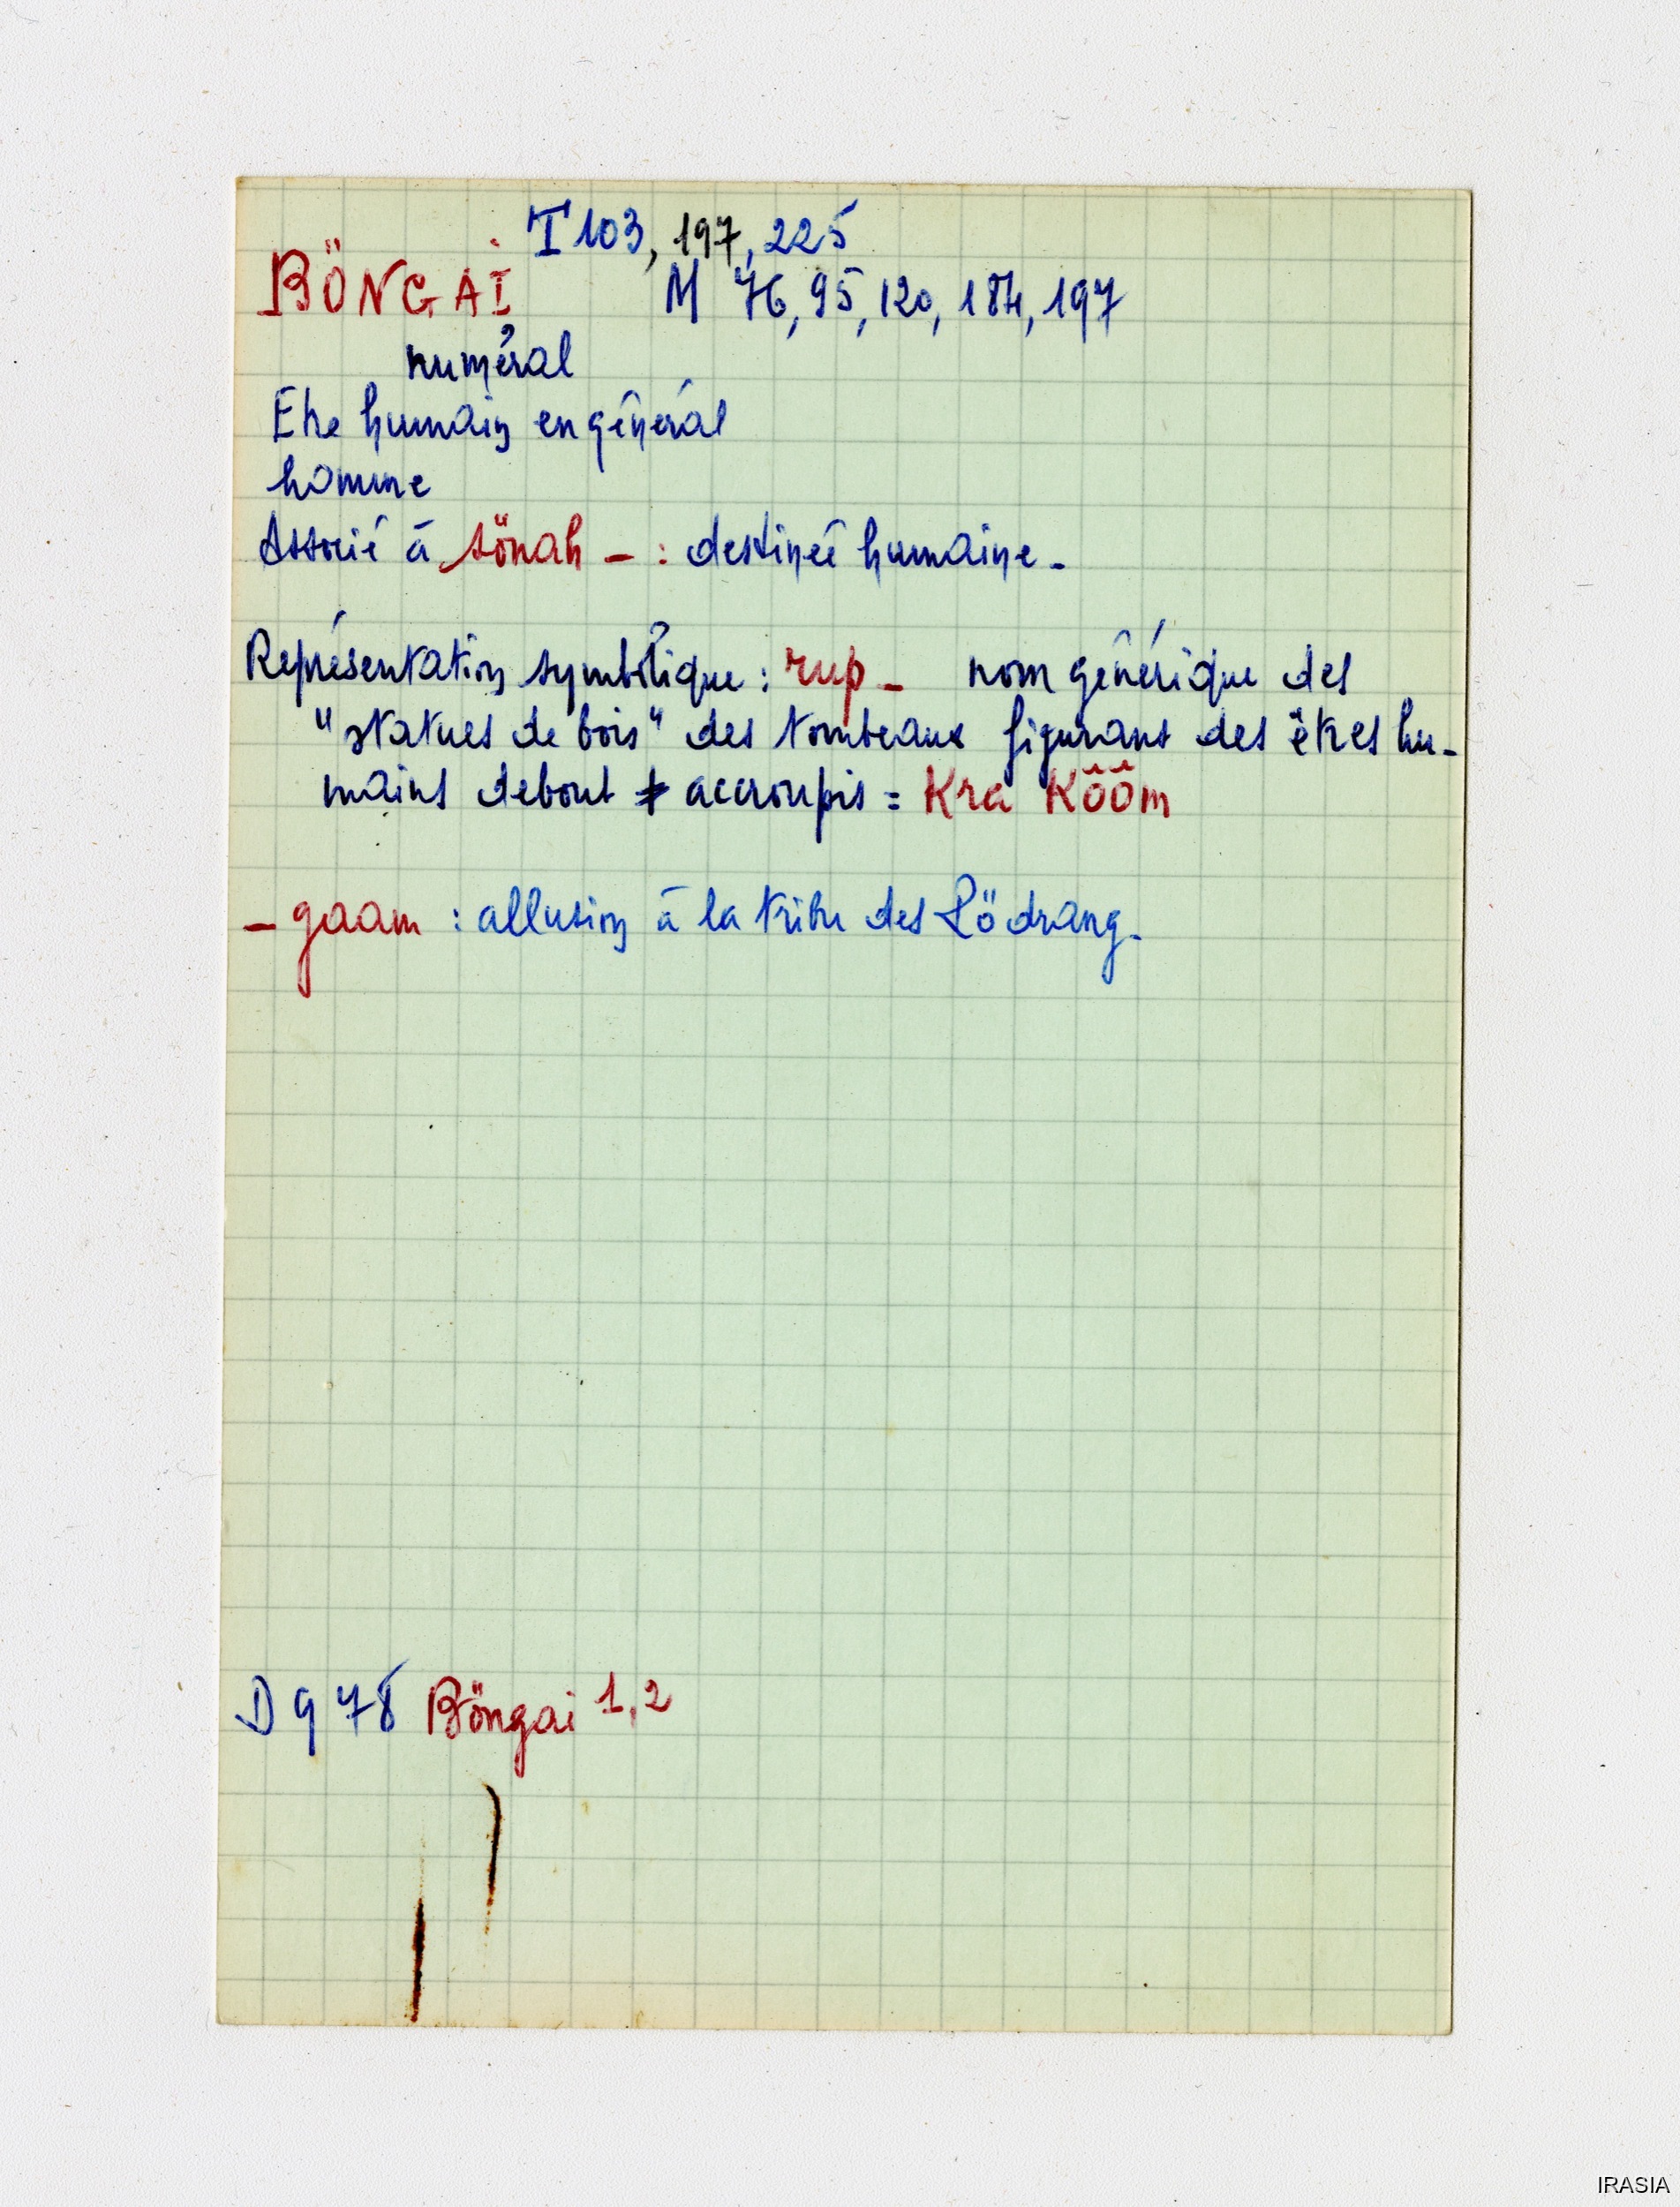 T 103, 197, 225
BÖNGAI M 76, 95, 120, 184, 197
numéral
Etre humain en général
homme
Associé à sönah _ : destinée humaine _
Représentation symbolique : rup _ nom générique des
"statues de bois" des tombeaux figurant des êtres hu-
mains debout ≠ accroupis = Kra Kôôm
_ gaam : allusion à la tribu des Rödrang _
D 9 78 Böngai 1, 2
IRASIA